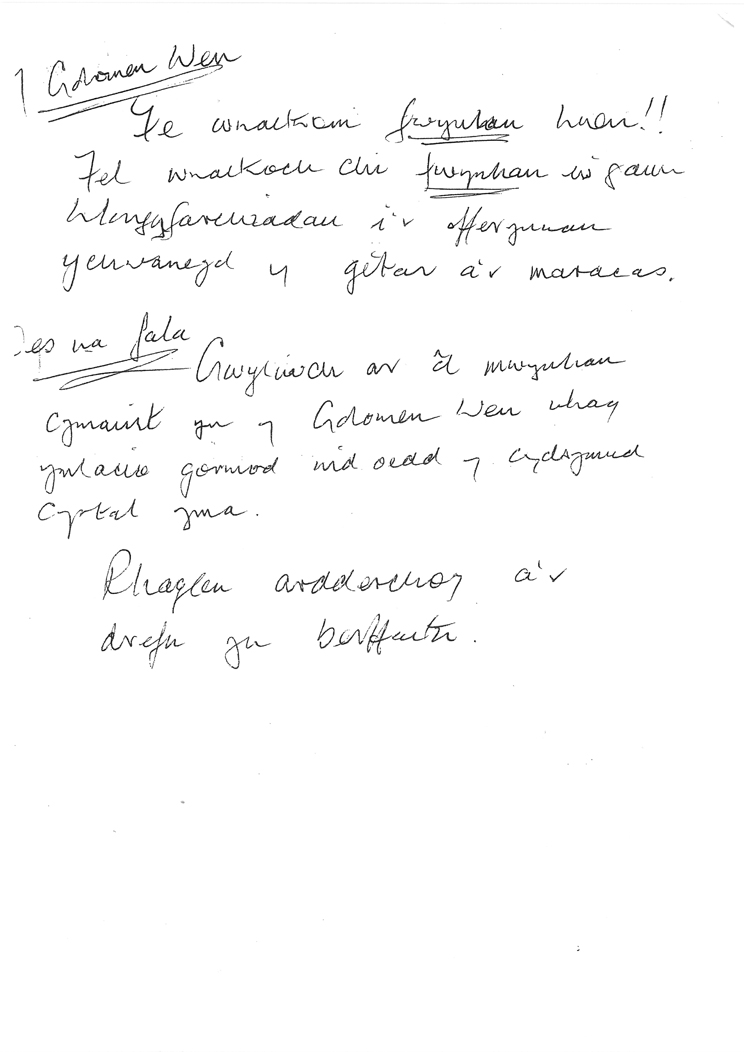 1 Golomen Wen
Fe wnaethom fwynhau hwn!!
Fel wnaethoch chi fwynhau
llongyfarchiadau i'r offerynnau
ychwanegd y gitar a'r maracas.
na fala
Gwyliwch ar ôl mwynhau
cymaint yn y Golomen Wen rhag
ymlacio gormod nid oedd y cydsymud
cystal yma.
Rhaglen ardderchog a'r
drefn yn berffaith.